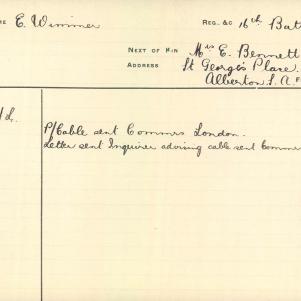 ME E. Wimmer
REG. &C 16th Bat
NEXT OF KIN Mrs E. Bennett
ADDRESS St George's Place.
Alberton S. A
P/Cable sent Commrs London.
Letter sent Inquirer advising cable sent Comme